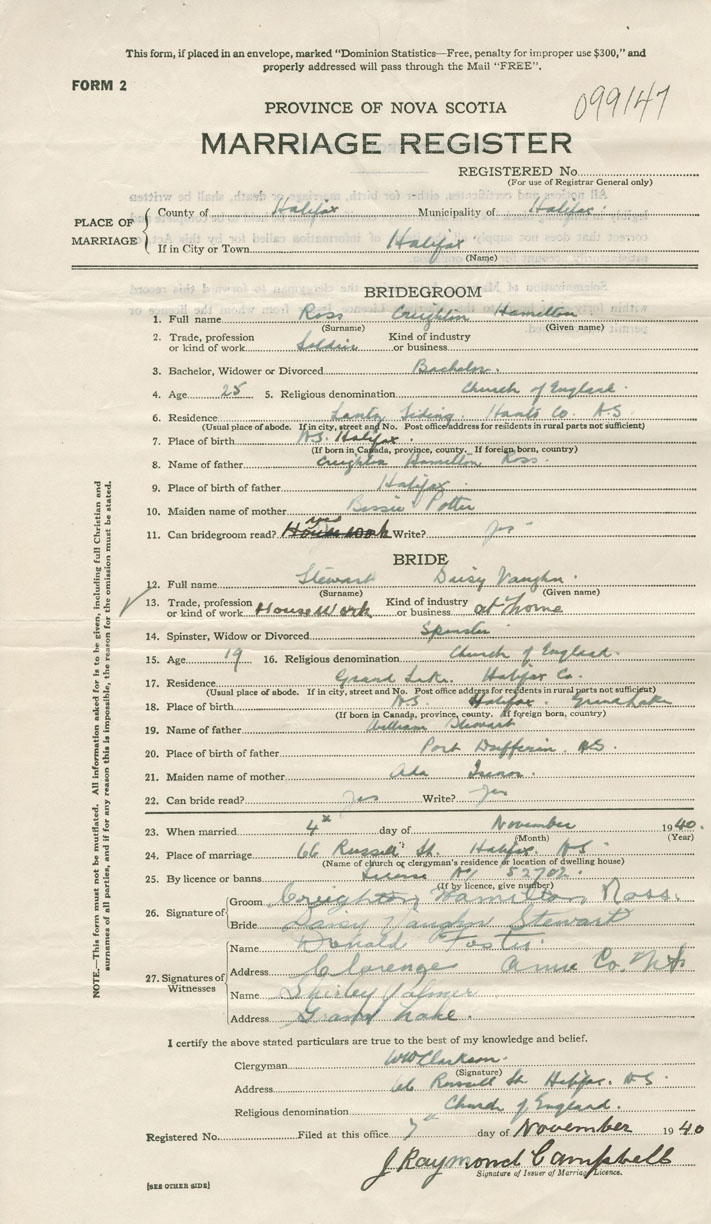 This form, if placed in an envelope, marked "Dominion Statistics—Free, penalty for improper use $300," and
properly addressed will pass through the Mail "FREE".
FORM 2
099147
PROVINCE OF NOVA SCOTIA
MARRIAGE REGISTER
REGISTERED No.
(For use of Registrar General only)
PLACE OF MARRIAGE
County of Halifax Municipality of Halifax
If in City or Town Halifax
(Name)
BRIDEGROOM
1. Full name Ross Creighton Hamilton
(Surname) (Given name)
2. Trade, profession or kind of work Soldier Kind of industry or business
3. Bachelor, Widower or Divorced Bachelor.
4. Age 25 5. Religious denomination Church of England.
6. Residence Lantz Siding. Hants Co. N.S.
(Usual place of abode. If in city, street and No. Post office address for residents in rural parts not sufficient)
7. Place of birth N.S. Halifax.
(If born in Canada, province, county. If foreign born, country)
8. Name of father Creighton Hamilton Ross.
9. Place of birth of father Halifax.
10. Maiden name of mother Bessie Potter
11. Can bridegroom read? yes Housework Write? Yes
BRIDE
12. Full name Stewart Daisy Vaughn.
(Surname) (Given name)
13. Trade, profession or kind of work HouseWork Kind of industry or business at home
14. Spinster, Widow or Divorced Spinster
15. Age 19 16. Religious denomination Church of England.
17. Residence Grand Lake. Halifax Co.
(Usual place of abode. If in city, street and No. Post office address for residents in rural parts not sufficient)
18. Place of birth N.S. Halifax. Grand Lake
(If born in Canada, province, county. If foreign born, country)
19. Name of father William Stewart
20. Place of birth of father Port Dufferin. N.S.
21. Maiden name of mother Ada
22. Can bride read? Yes Write? Yes
23. When married 4th day of November 1940.
(Month) (Year)
24. Place of marriage 66 Russell St. Halifax. N.S.
(Name of church or clergyman's residence or location of dwelling house)
25. By licence or banns License No 52702.
(If by licence, give number)
26. Signature of
Groom Creighton Hamilton Ross.
Bride Daisy Vaughn Stewart
27. Signatures of Witnesses
Name Donald Foster
Address Clarence Anna Co. N.S
Name Shirley Palmer
Address Grand Lake.
I certify the above stated particulars are true to the best of my knowledge and belief.
Clergyman WW Clarkson.
(Signature)
Address 66 Russell St. Halifax. N.S.
Religious denomination Church of England.
Registered No. Filed at this office 7th day of November 1940
J Raymond Campbell
Signature of Issuer of Marriage Licence.
[SEE OTHER SIDE]
NOTE.—This form must not be mutilated. All information asked for is to be given, including full Christian and
surnames of all parties, and if for any reason this is impossible, the reason for the omission must be stated.